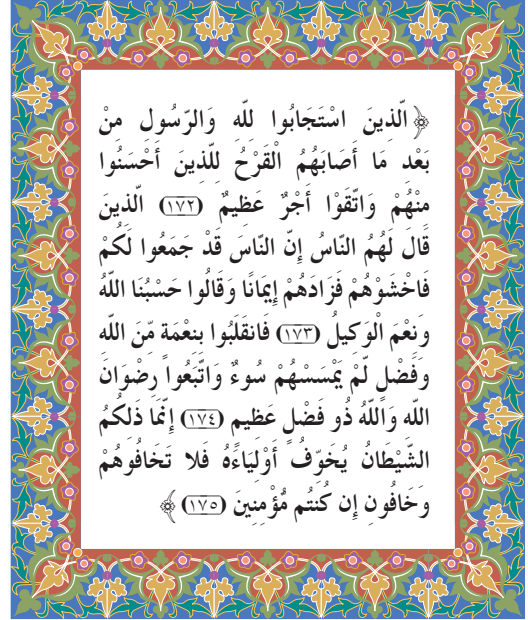 ﴿ الّذينَ اسْتَجَابُوا للّه وَالرّسُول منْ
بَعْد مَا أَصَابَهُمُ الْقَرْحُ للّذينَ أَحْسَنُوا
منْهُمْ وَاتّقَوْا أَجْرٌ عَظيمٌ (١٧٢) الّذينَ
قَالَ لَهُمُ النّاسُ إنّ النّاسَ قَدْ جَمَعُوا لَكُمْ
فَاخْشَوْهُمْ فَزَادَهُمْ إيمَانًا وَقَالُوا حَسْبُنَا اللّهُ
وَنعْمَ الْوَكيلُ (١٧٣) فَانقَلَبُوا بنعْمَة مّنَ اللّه
وفَضْل لّمْ يَمْسَسْهُمْ سُوءٌ وَاتّبَعُوا رضْوانَ
اللّه وَاللّهُ ذُو فَضْل عَظيم (١٧٤) إنّمَا ذَلكُمُ
الشّيْطَانُ يُخَوّفُ أَوْليَاءَهُ فَلا تَخَافُوهُمْ
وَخَافُون إن كُنتُم مّؤْمنينَ (١٧٥) ﴾